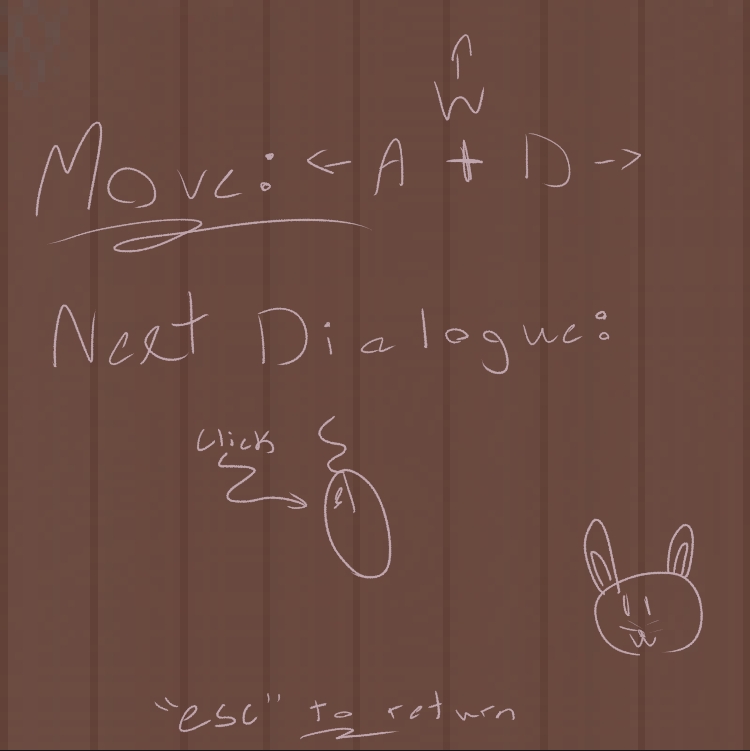 W
Move: ← A + D →
Next Dialogue:
click
"esc" to return